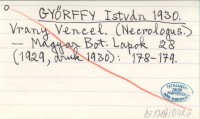 GYÖRFFY István 1930.
Vrany Vencel. (Necrologus.)
— Magyar Bot. Lapok 28
(1929, druk 1930): 178-179.